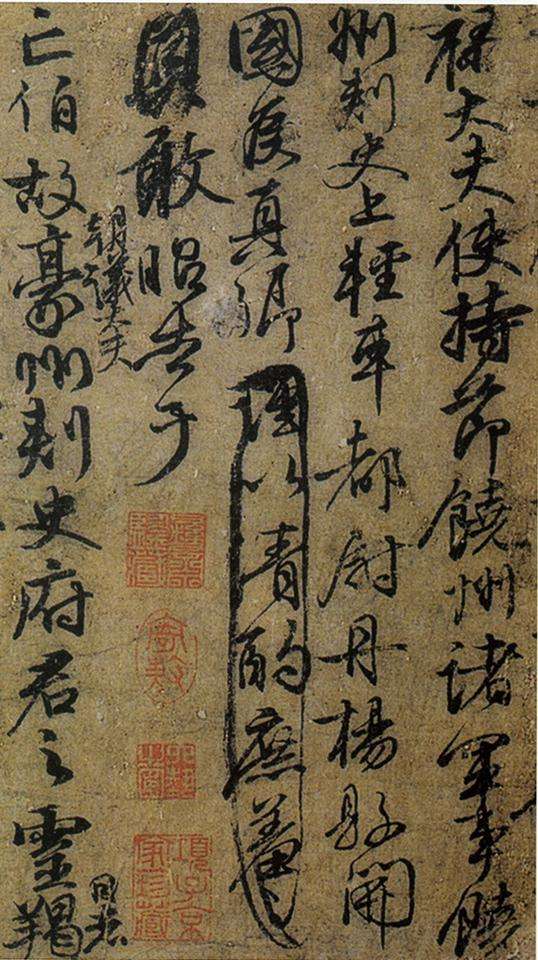 禄大夫使持節饒州諸軍事饒
州刺史上輕車都尉丹楊縣開
國侯真卿謹以清酌庶羞之
敢昭告于
朝議大夫
亡伯故豪州刺史府君之靈羯
項子京家珍藏